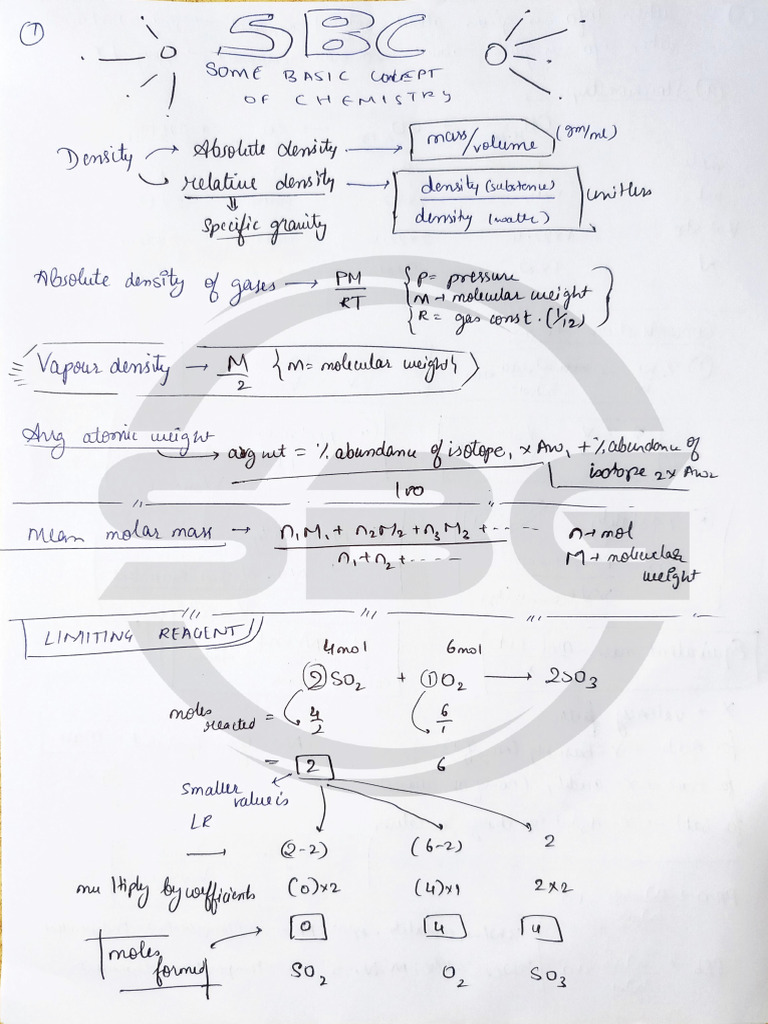 ①
SBC
SOME BASIC CONCEPT
OF CHEMISTRY
Density → Absolute density → mass/volume (gm/ml)
→ relative density → density (substance) / density (water) unitless
⇓
specific gravity
Absolute density of gases → PM/RT { P = pressure
M → molecular weight
R = gas const. (1/12) }
Vapour density → M/2 { M = molecular weight }
Avg atomic weight
→ avg wt = % abundance of isotope1 × Aw1 + % abundance of isotope 2 × Aw2
100
Mean molar mass → n1M1 + n2M2 + n3M3 + ---- n → mol
n1 + n2 + ----- M → molecular weight
LIMITING REAGENT
4mol 6mol
②SO2 + ①O2 → 2SO3
moles reacted = 4/2 6/1
= 2 6
smaller value is
LR
→ (2-2) (6-2) 2
multiply by coefficients (0)×2 (4)×1 2×2
moles formed → 0 4 4
SO2 O2 SO3
SBG